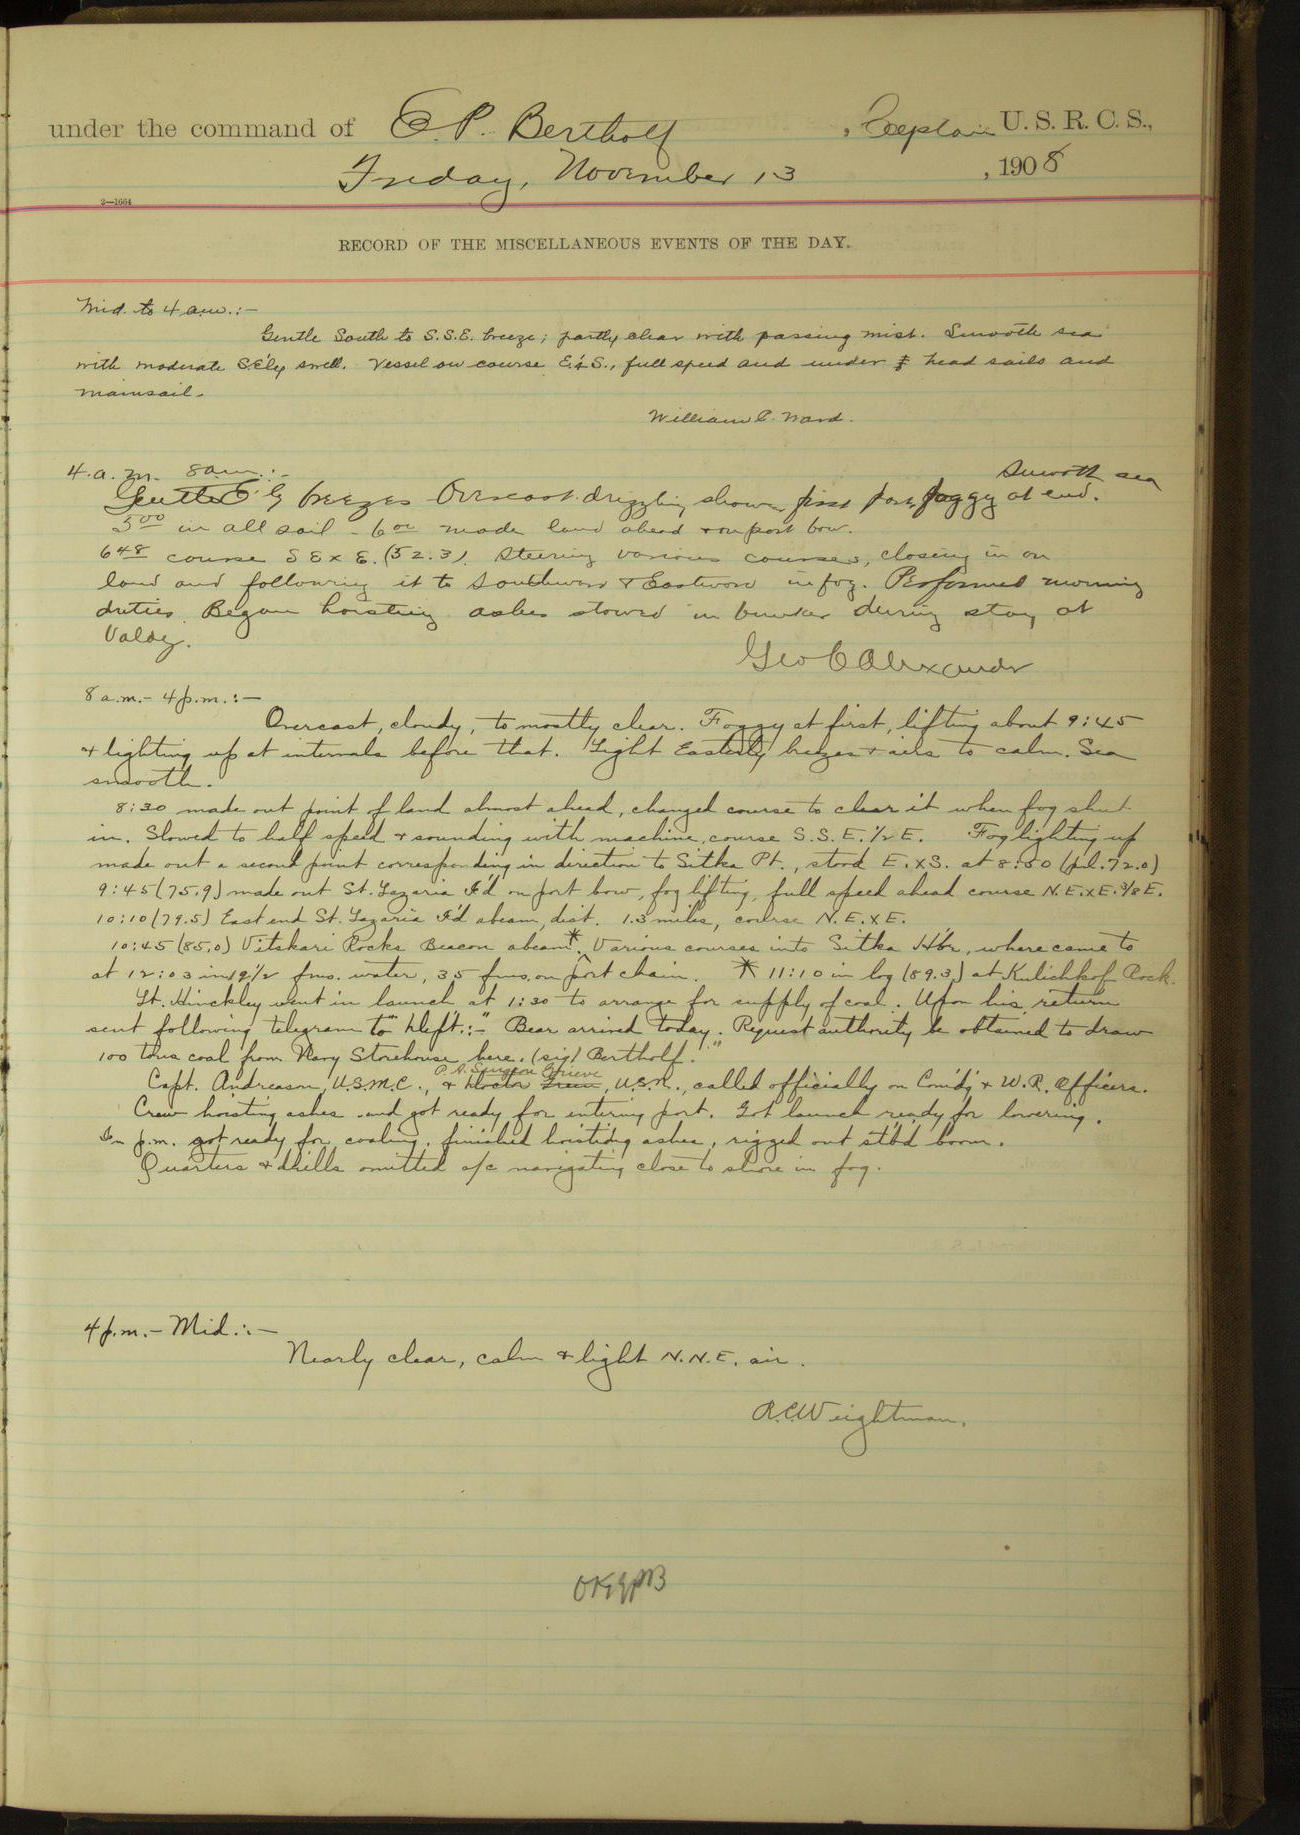 under the command of E. P. Bertholf, Captain U. S. R. C. S.,
Friday, November 13, 1908
2—1664
RECORD OF THE MISCELLANEOUS EVENTS OF THE DAY.
Mid. to 4 a.m.:-
Gentle South to S.S.E. breeze; partly clear with passing mist. Smooth sea
with moderate S.E'ly swell. Vessel on course E.¼S., full speed and under head sails and
mainsail.
William C. Ward.
4. a. m. 8 a.m.:-
Gentle E'ly breezes Overcast drizzling shower first part, foggy at end. Smooth sea
5 00 in all sail - 6 00 made land ahead + on port bow.
6 48 course S E x E. (52.3). Steering various courses, closing in on
land and following it to Southward & Eastward in fog. Performed morning
duties. Began hoisting ashes stowed in bunker during stay at
Valdez.
Geo C Alexander
8 a.m.- 4 p.m.:-
Overcast, cloudy, to mostly clear. Foggy at first, lifting about 9:45
& lighting up at intervals before that. Light Easterly breezes & airs to calm. Sea
smooth.
8:30 made out point of land almost ahead, changed course to clear it when fog shut
in. Slowed to half speed & sounding with machine, course S.S.E.½E. Fog lighting up
made out a second point corresponding in direction to Sitka Pt., stood E.xS. at 8:50 (p.l. 72.0)
9:45 (75.9) made out St. Lazaria I'd on port bow, fog lifting, full speed ahead course N.E.xE.⅜E.
10:10 (79.5) East end St. Lazaria I'd abeam, dist. 1.3 miles, course N.E.xE.
10:45 (85.0) Vitskari Rocks Beacon abeam*. Various courses into Sitka H'br, where came to
at 12:03 in 19½ fms. water, 35 fms. on port chain. * 11:10 in log (89.3) at Kulichkof Rock.
Lt. Hinckley went in launch at 1:30 to arrange for supply of coal. Upon his return
sent following telegram to Dep't.:-" Bear arrived today. Request authority be obtained to draw
100 tons coal from Navy Storehouse here. (sig) Bertholf."
P. A. Surgeon Grieve
Capt. Andreason, U.S.M.C., & Doctor , U.S.N., called officially on Com'd'g & W.R. Officers.
Crew hoisting ashes and got ready for entering port. Got launch ready for lowering.
In p.m. got ready for coaling, finished hoisting ashes, rigged out stb'd boom.
Quarters & drills omitted a/c navigating close to shore in fog.
4 p.m.- Mid.:-
Nearly clear, calm & light N.N.E. air.
R.C.Weightman.
OK EPB